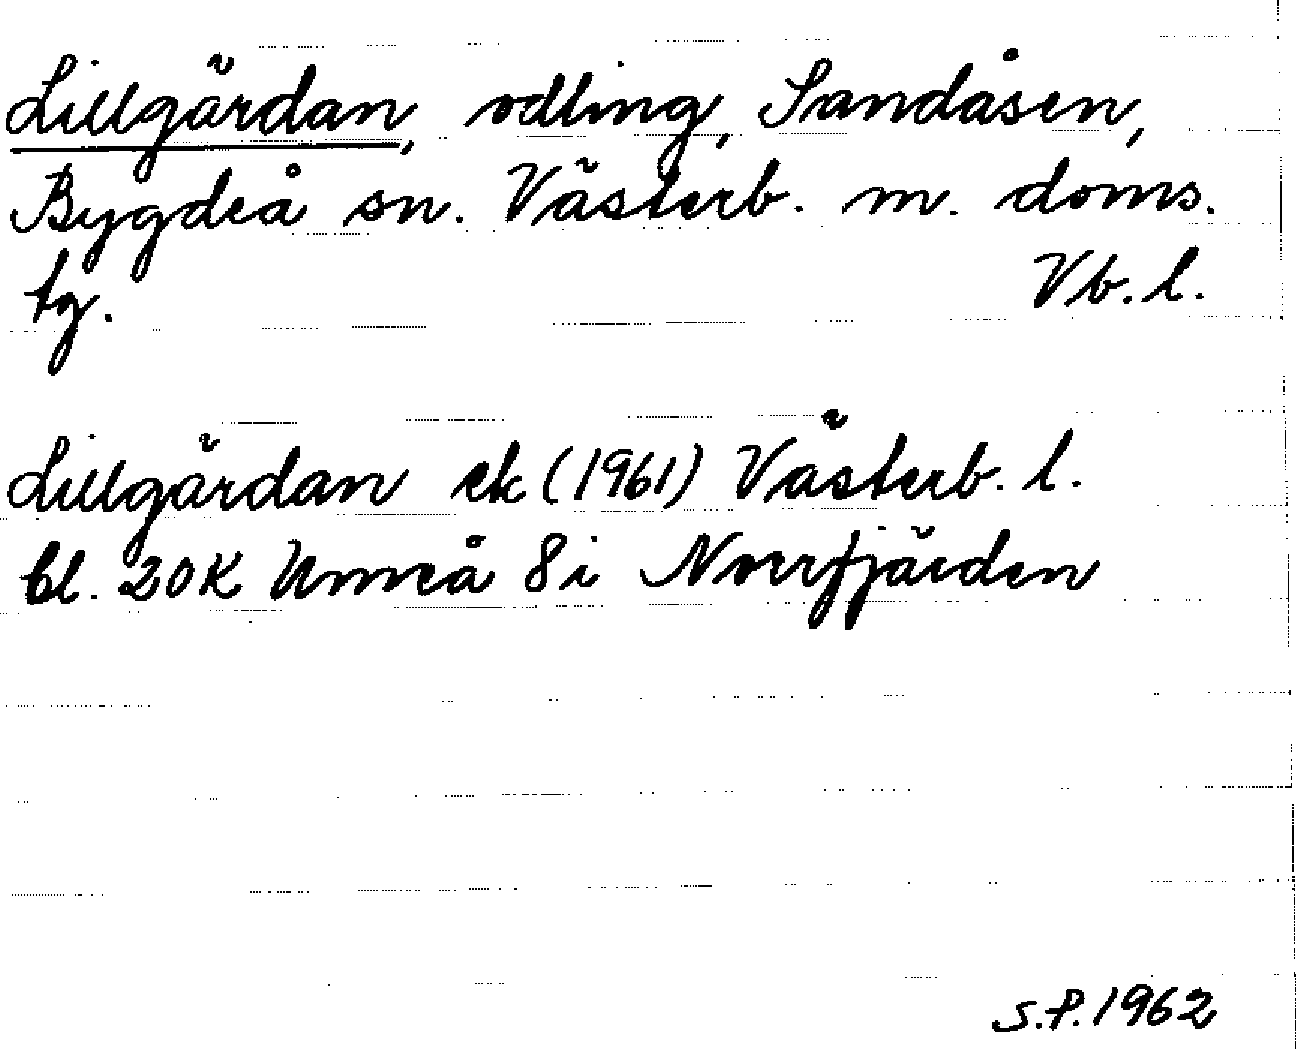 Lillgärdan, odling, Sandåsen,
Bygdeå sn. Västerb. m. doms.
tg. Vb. l.
Lillgärdan ek (1961) Västerb. l.
bl. 20K Umeå 8i Norrfjärden
S.P. 1962